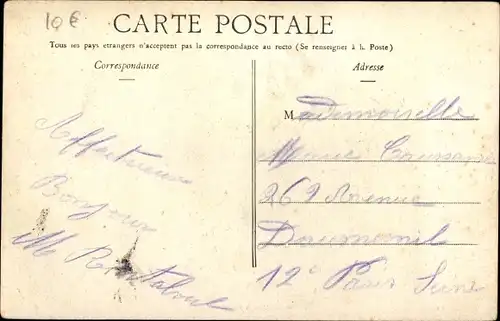 10€
CARTE POSTALE
Tous les pays etrangers n'acceptent pas la correspondance au recto (Se renseigner à la Poste)
Correspondance
Adresse
Affectueux
Bonjour
M
Mademoiselle
269 Avenue
Daumesnil
12e Paris Seine